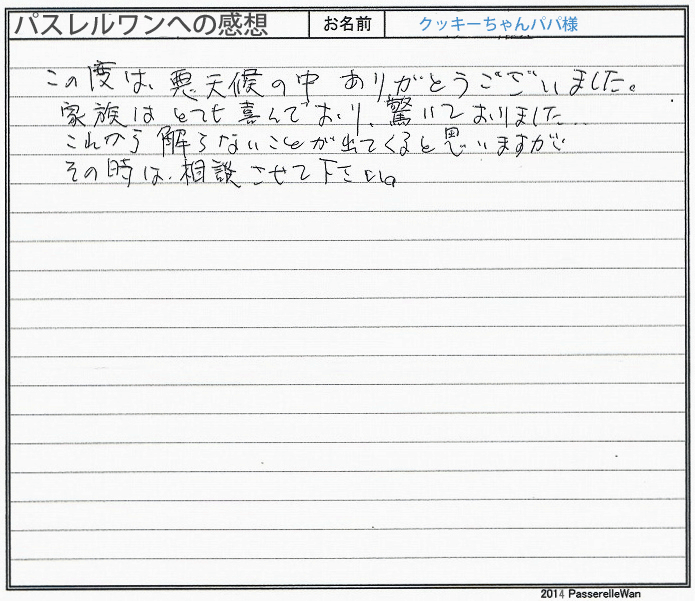 パスレルワンへの感想 お名前 クッキーちゃんパパ様
この度は、悪天候の中 ありがとうございました。
家族はとても喜んでおり、驚いておりました。
これから解らないことが出てくると思いますが
その時は、相談させて下さい。
2014 PasserelleWan